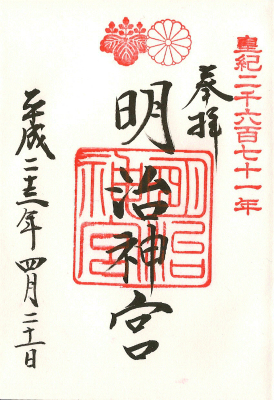 皇紀二千六百七十一年
奉拝
明治神宮
明治神宮
平成二十三年四月二十一日